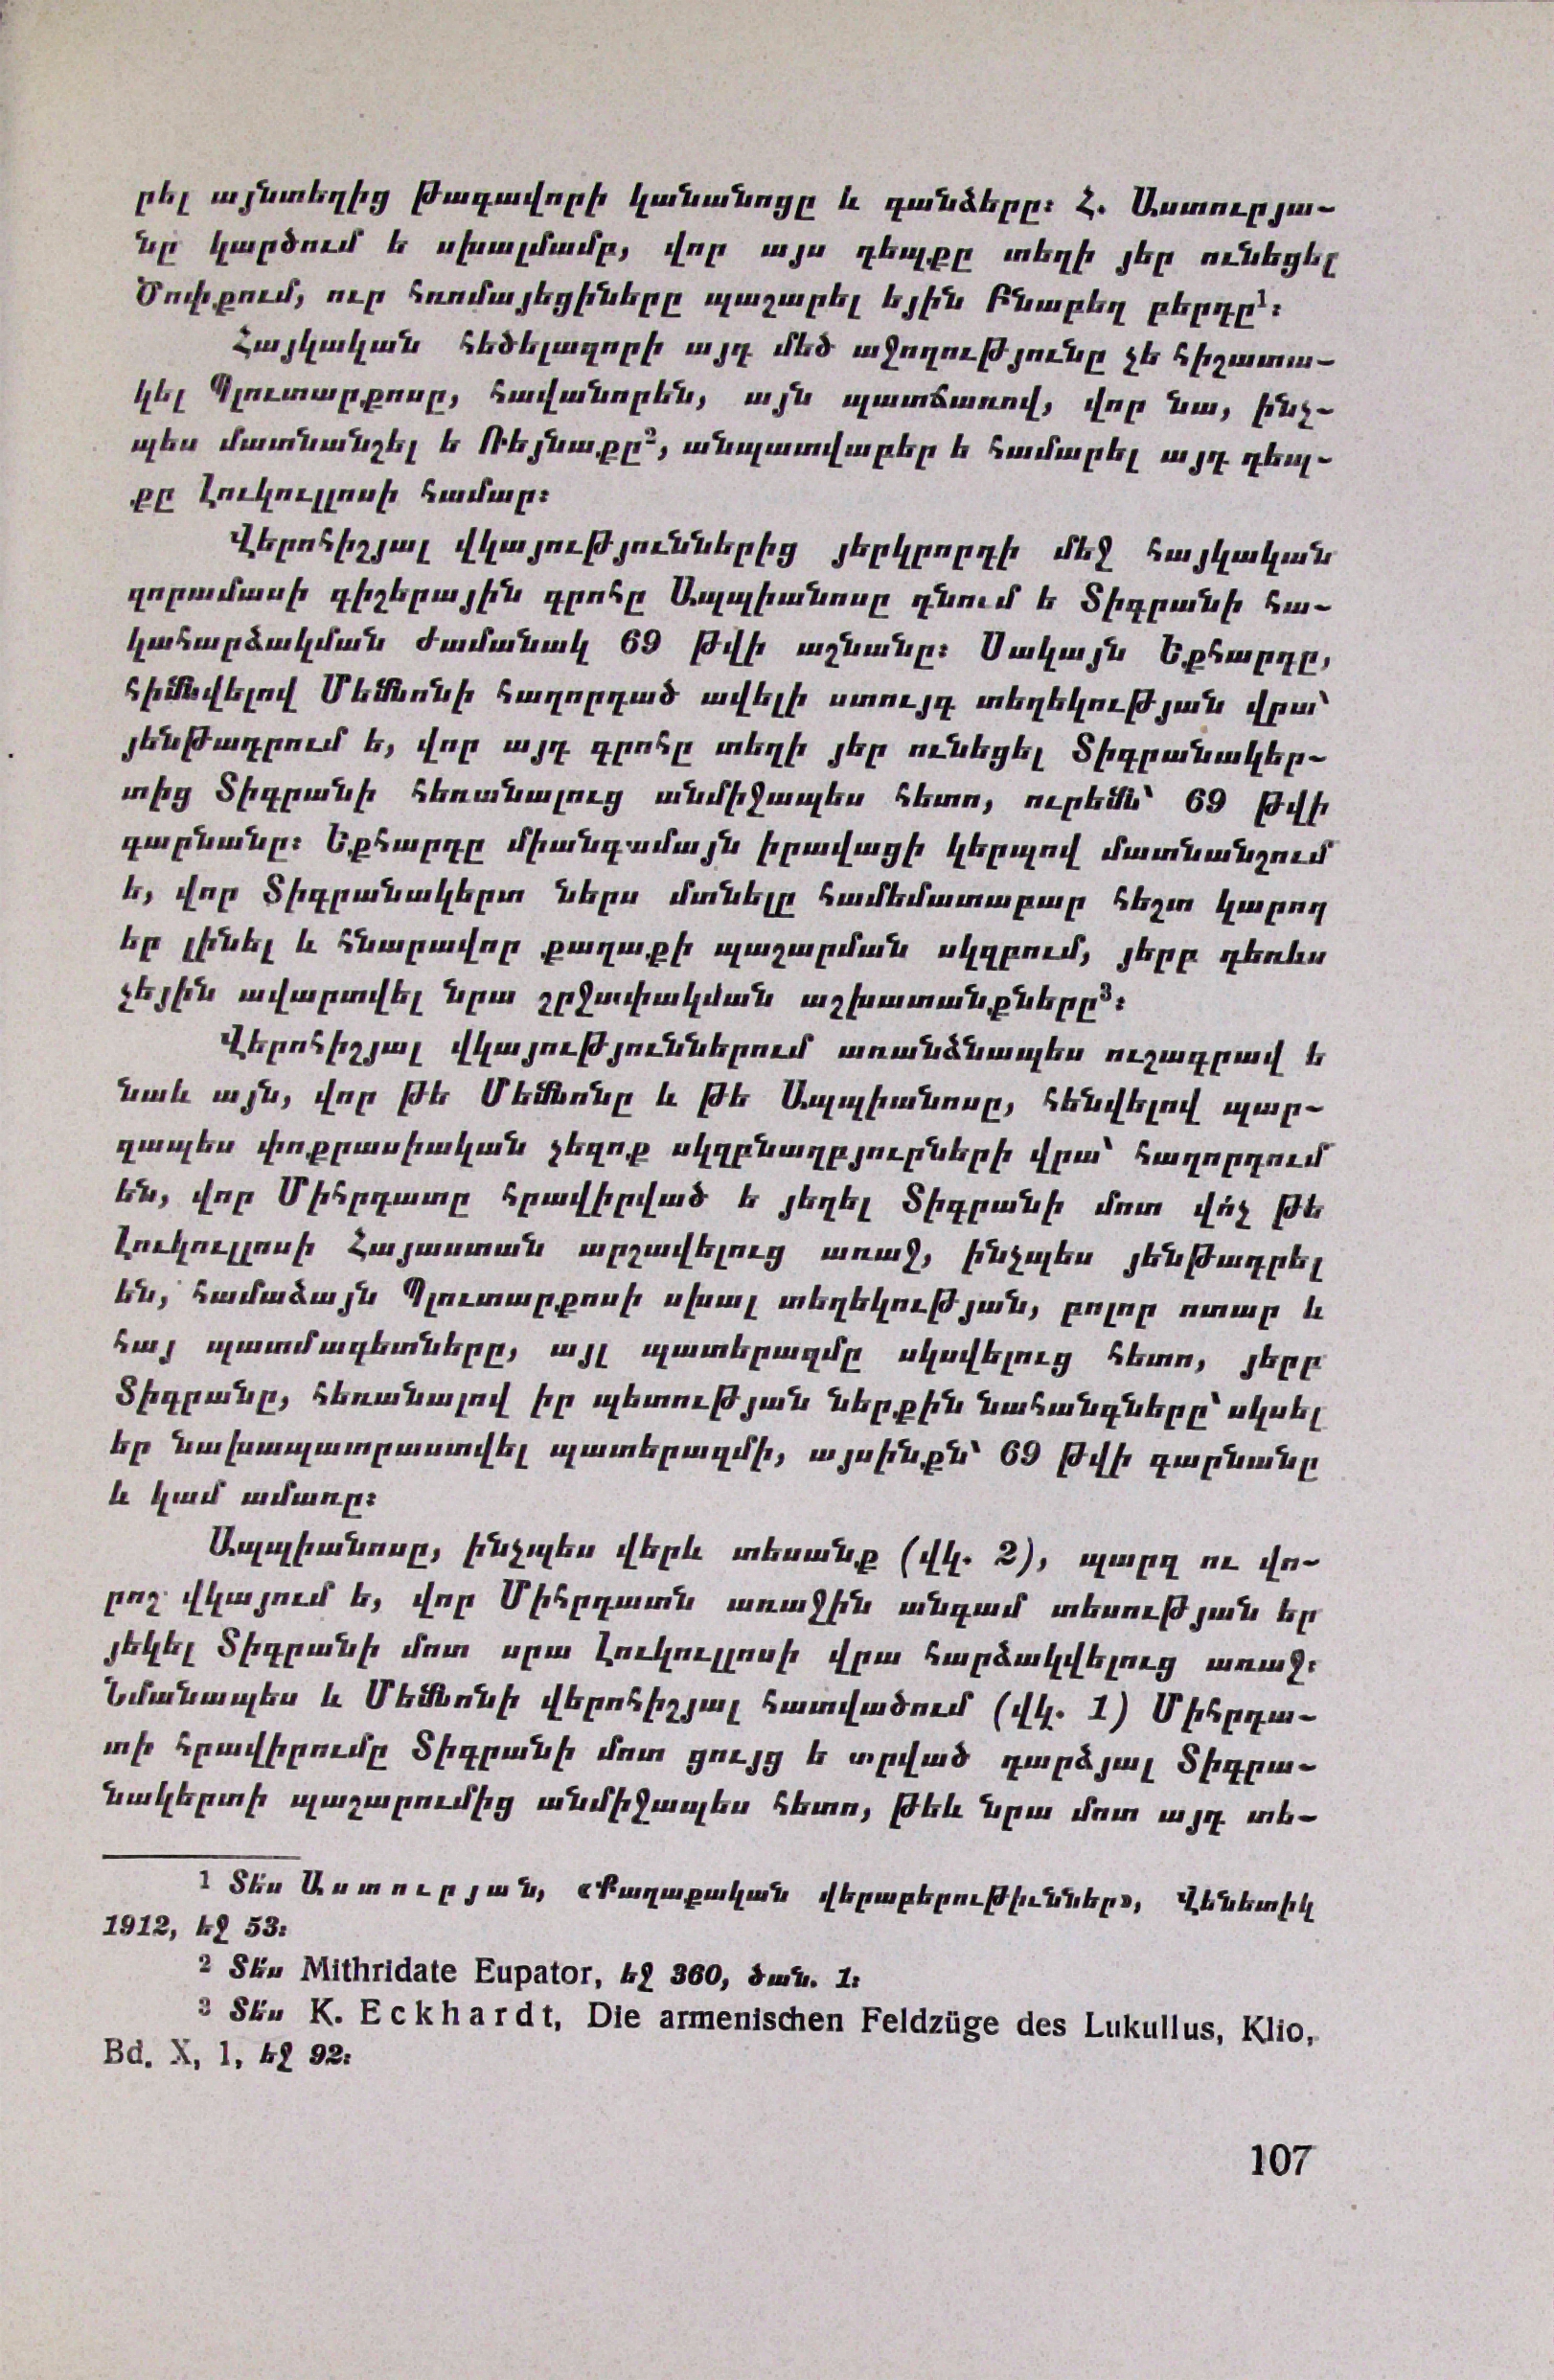 րել այնտեղից թագավորի կանանոցը և գանձերը։ Հ. Աստուրյա-
նը կարծում ե սխալմամբ, վոր այս դեպքը տեղի յեր ունեցել
Ծոփքում, ուր հռոմայեցիները պաշարել եյին Բնաբեղ բերդը¹։
Հայկական հեծելազորի այդ մեծ աջողությունը չե հիշատա-
կել Պլուտարքոսը, հավանորեն, այն պատճառով, վոր նա, ինչ-
պես մատնանշել ե Ռեյնաքը², անպատվաբեր ե համարել այդ դեպ-
քը Լուկուլլոսի համար։
Վերոհիշյալ վկայություններից յերկրորդի մեջ հայկական
զորամասի գիշերային գրոհը Ապպիանոսը դնում ե Տիգրանի հա-
կահարձակման ժամանակ 69 թվի աշնանը։ Սակայն Եքհարդը,
հիմնվելով Մեմնոնի հաղորդած ավելի ստույգ տեղեկության վրա՝
յենթադրում ե, վոր այդ գրոհը տեղի յեր ունեցել Տիգրանակեր-
տից Տիգրանի հեռանալուց անմիջապես հետո, ուրեմն՝ 69 թվի
գարնանը։ Եքհարդը միանգամայն իրավացի կերպով մատնանշում
ե, վոր Տիգրանակերտ ներս մտնելը համեմատաբար հեշտ կարող
եր լինել և հնարավոր քաղաքի պաշարման սկզբում, յերբ դեռևս
չեյին ավարտվել նրա շրջափակման աշխատանքները³։
Վերոհիշյալ վկայություններում առանձնապես ուշագրավ ե
նաև այն, վոր թե Մեմնոնը և թե Ապպիանոսը, հենվելով պար-
զապես փոքրասիական չեզոք սկզբնաղբյուրների վրա՝ հաղորդում
են, վոր Միհրդատը հրավիրված ե յեղել Տիգրանի մոտ վո՛չ թե
Լուկուլլոսի Հայաստան արշավելուց առաջ, ինչպես յենթադրել
են, համաձայն Պլուտարքոսի սխալ տեղեկության, բոլոր ոտար և
հայ պատմագետները, այլ պատերազմը սկսվելուց հետո, յերբ
Տիգրանը, հեռանալով իր պետության ներքին նահանգները՝ սկսել
եր նախապատրաստվել պատերազմի, այսինքն՝ 69 թվի գարնանը
և կամ ամառը։
Ապպիանոսը, ինչպես վերև տեսանք (վկ. 2), պարզ ու վո-
րոշ վկայում ե, վոր Միհրդատն առաջին անգամ տեսության եր
յեկել Տիգրանի մոտ սրա Լուկուլլոսի վրա հարձակվելուց առաջ։
Նմանապես և Մեմնոնի վերոհիշյալ հատվածում (վկ. 1) Միհրդա-
տի հրավիրումը Տիգրանի մոտ ցույց ե տրված դարձյալ Տիգրա-
նակերտի պաշարումից անմիջապես հետո, թեև նրա մոտ այդ տե-
1 Տե՛ս Աստուրյան, «Քաղաքական վերաբերութիւններ», Վենետիկ
1912, եջ 53։
2 Տե՛ս Mithridate Eupator, եջ 360, ծան. 1։
3 Տե՛ս K. Eckhardt, Die armenischen Feldzüge des Lukullus, Klio,
Bd. X, 1, եջ 92։
107